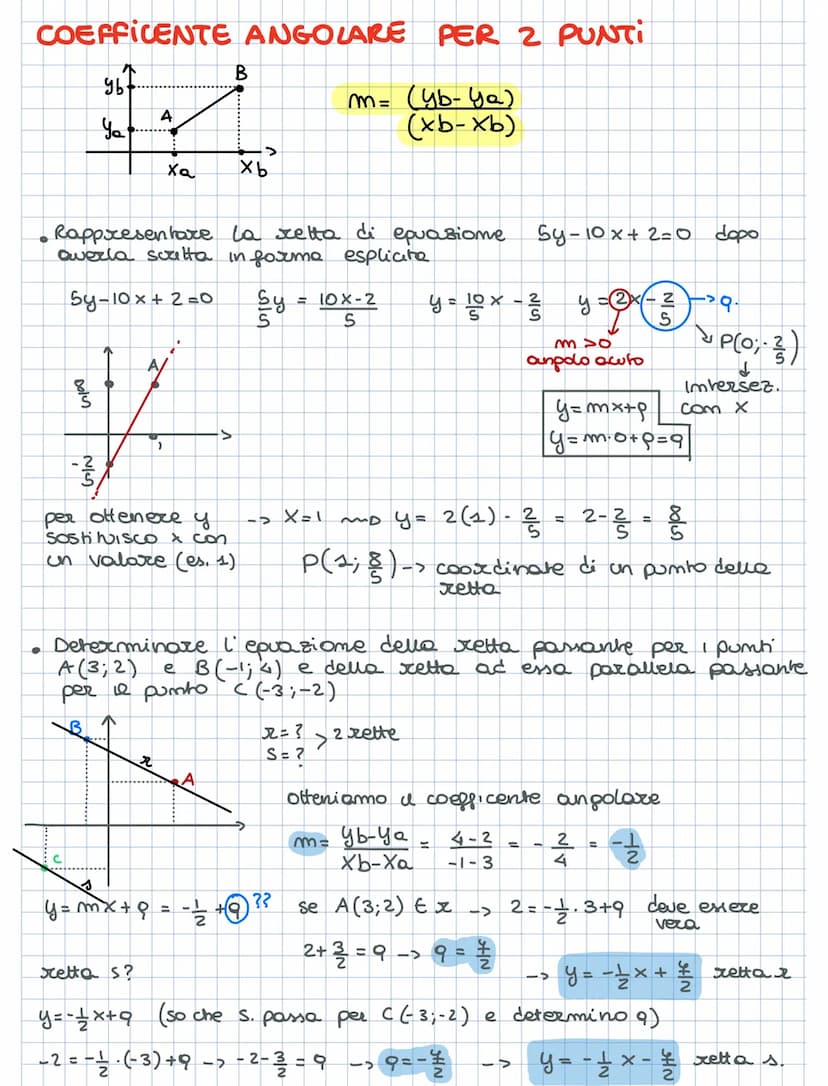 COEFFICENTE ANGOLARE PER 2 PUNTI
yb
B
ya
A
xa
xb
m= (yb-ya)
(xb-xb)
• Rappresentare la retta di equazione 5y-10x+2=0 dopo
averla scritta in forma esplicita
5y-10x+2=0 5/5 y = 10x-2/5 y = 10/5 x - 2/5 y = 2x - 2/5 -> q.
m>0
angolo acuto
P(0;-2/5)
↓
intersez.
con x
y=mx+q
y=m·0+q=q
A
8/5
1
-2/5
per ottenere y -> x=1 ~> y= 2(1) - 2/5 = 2-2/5 = 8/5
sostituisco x con
un valore (es. 1)
P(1; 8/5) -> coordinate di un punto della
retta
• Determinare l'equazione della retta passante per i punti
A(3;2) e B(-1;4) e della retta ad essa parallela passante
per il punto C(-3;-2)
B
r
A
C
s
r=? > 2 rette
s=?
otteniamo il coefficente angolare
m= yb-ya/xb-xa = 4-2/-1-3 = - 2/4 = -1/2
y=mx+q = -1/2 +q ?? se A(3;2) ∈ r -> 2=-1/2·3+q deve essere
vera
2+3/2=q -> q=7/2
-> y=-1/2x+7/2 retta r
retta s?
y=-1/2x+q (so che s. passa per C(-3;-2) e determino q)
-2=-1/2·(-3)+q -> -2-3/2=q -> q=-7/2 -> y=-1/2x-7/2 retta s.